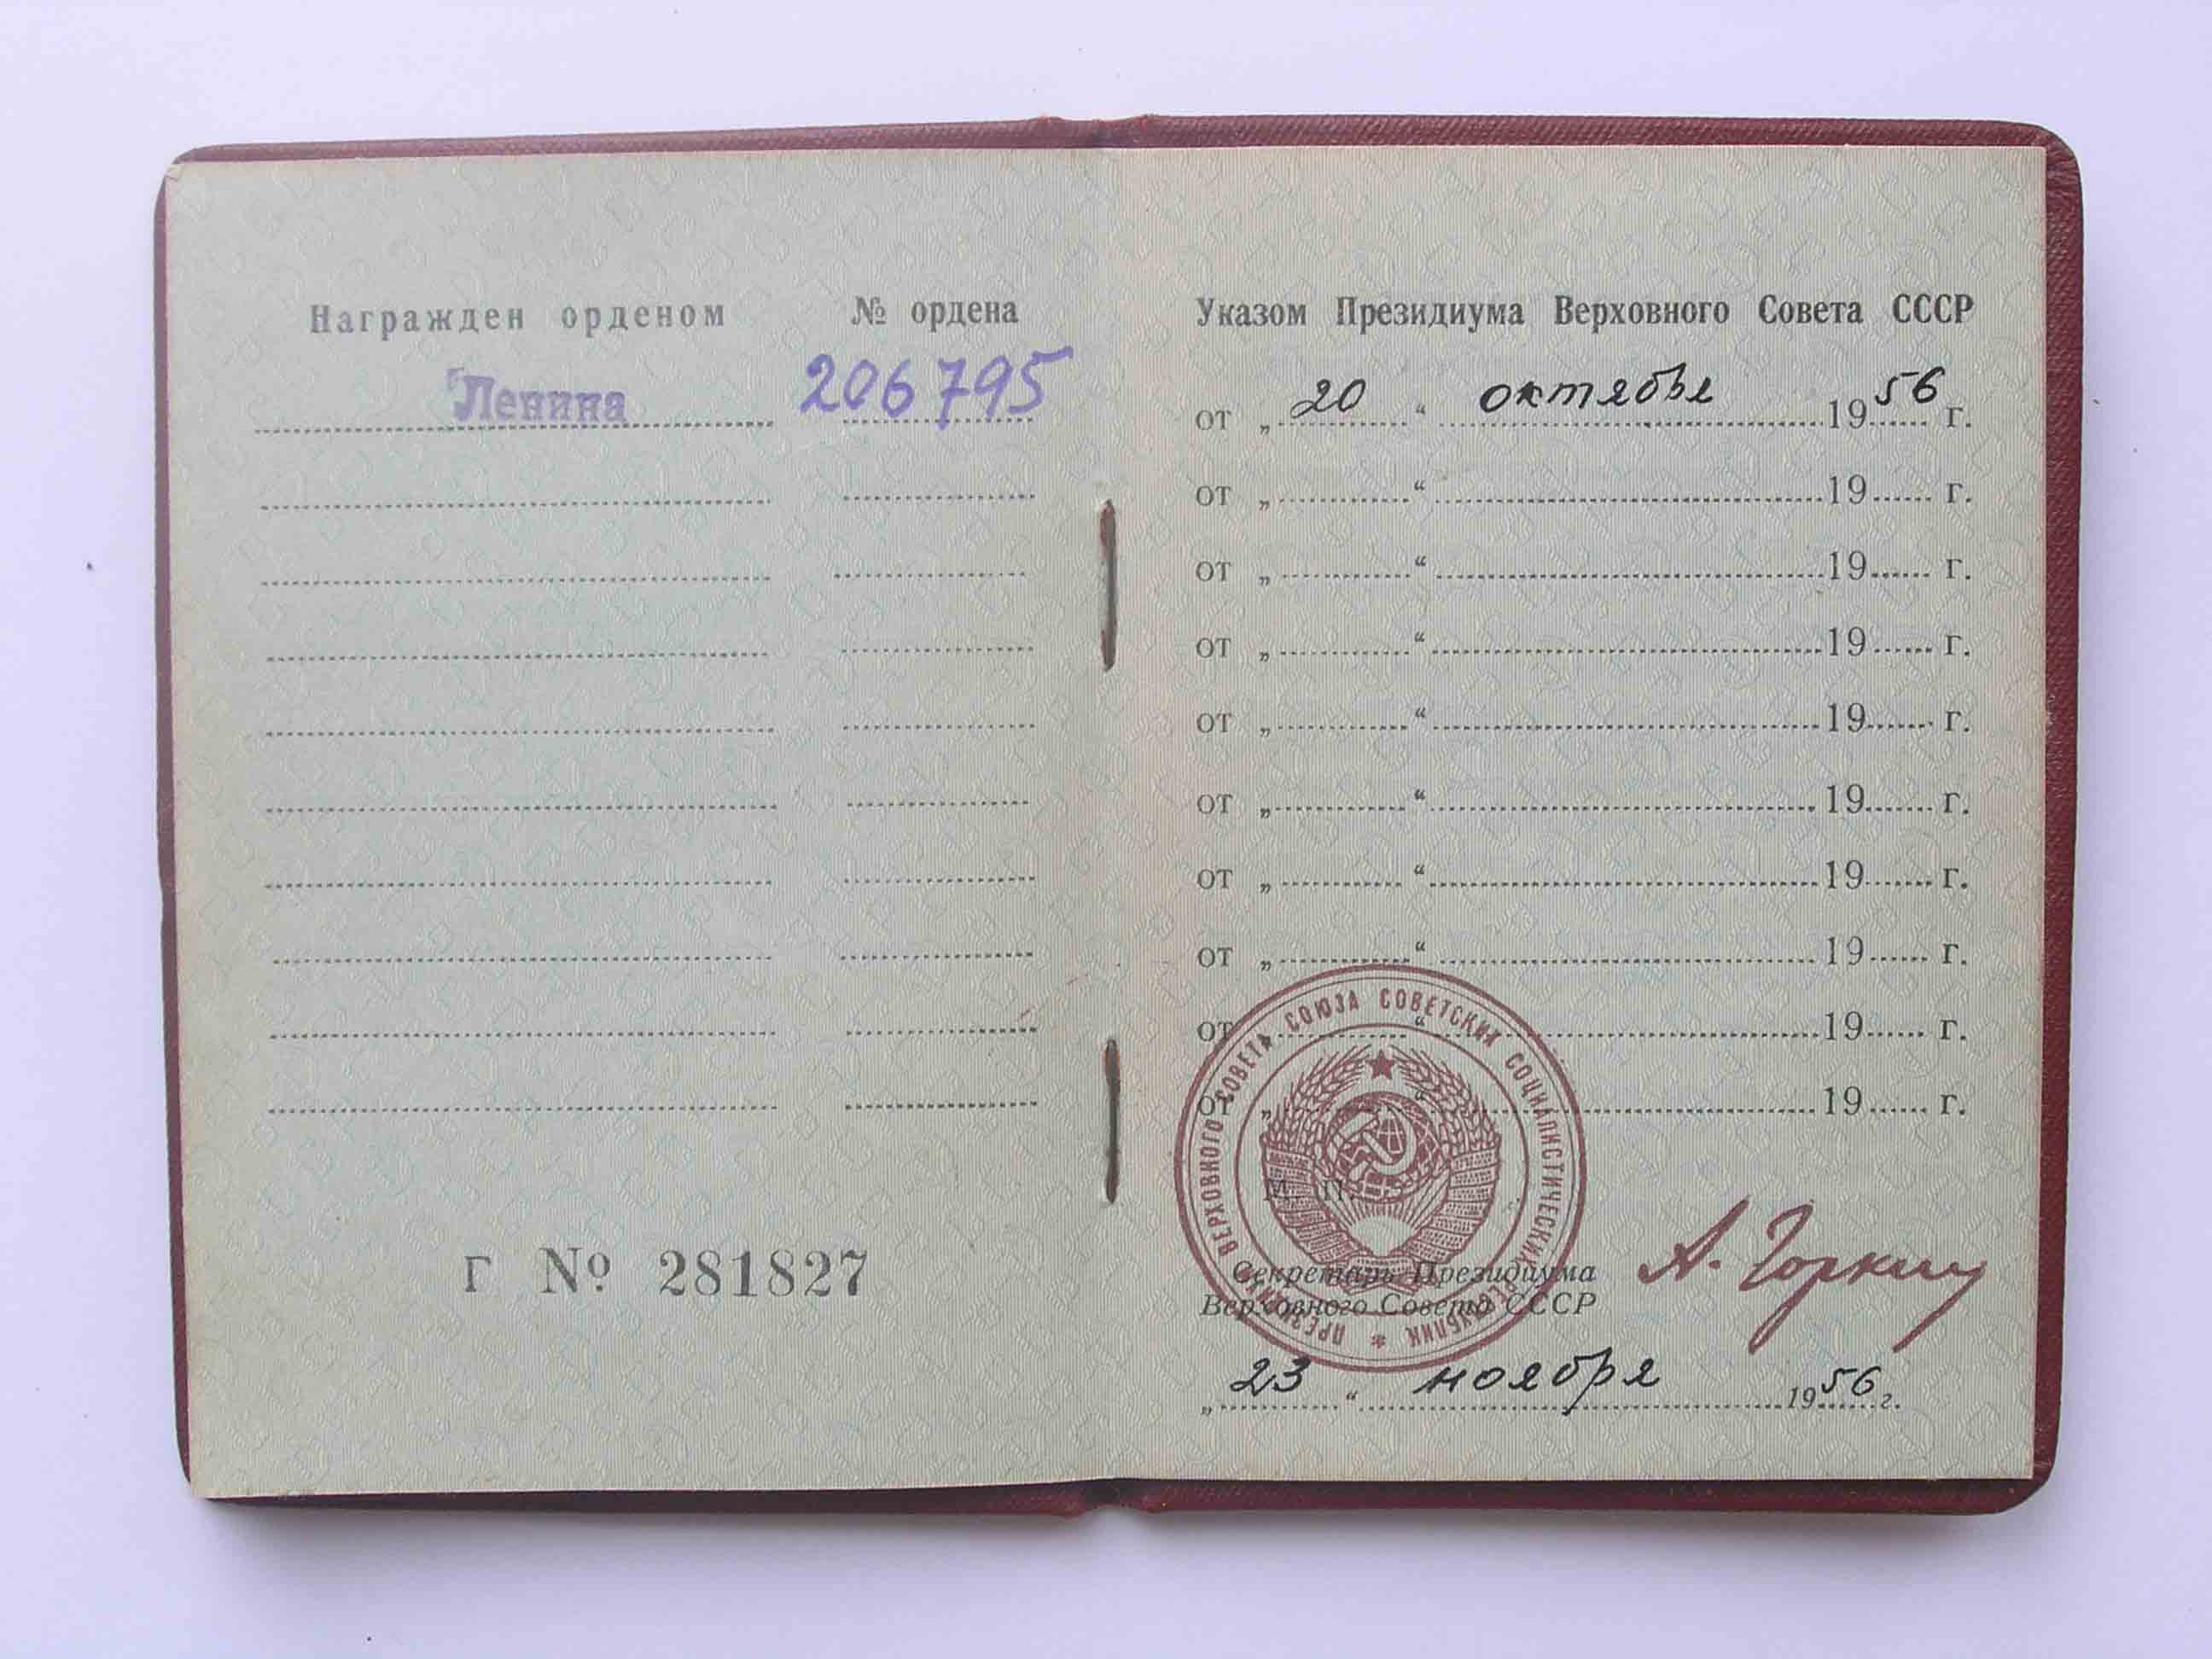 Награжден орденом № ордена
Ленина 206795
Г № 281827
Указом Президиума Верховного Совета СССР
от „20“ октября 1956 г.
от „ “ 19 г.
от „ “ 19 г.
от „ “ 19 г.
от „ “ 19 г.
от „ “ 19 г.
от „ “ 19 г.
от „ “ 19 г.
от „ “ 19 г.
от „ “ 19 г.
М. П.
ПРЕЗИДИУМ ВЕРХОВНОГО СОВЕТА СОЮЗА СОВЕТСКИХ СОЦИАЛИСТИЧЕСКИХ РЕСПУБЛИК *
Секретарь Президиума
Верховного Совета СССР
А. Горкин
„23“ ноября 1956 г.